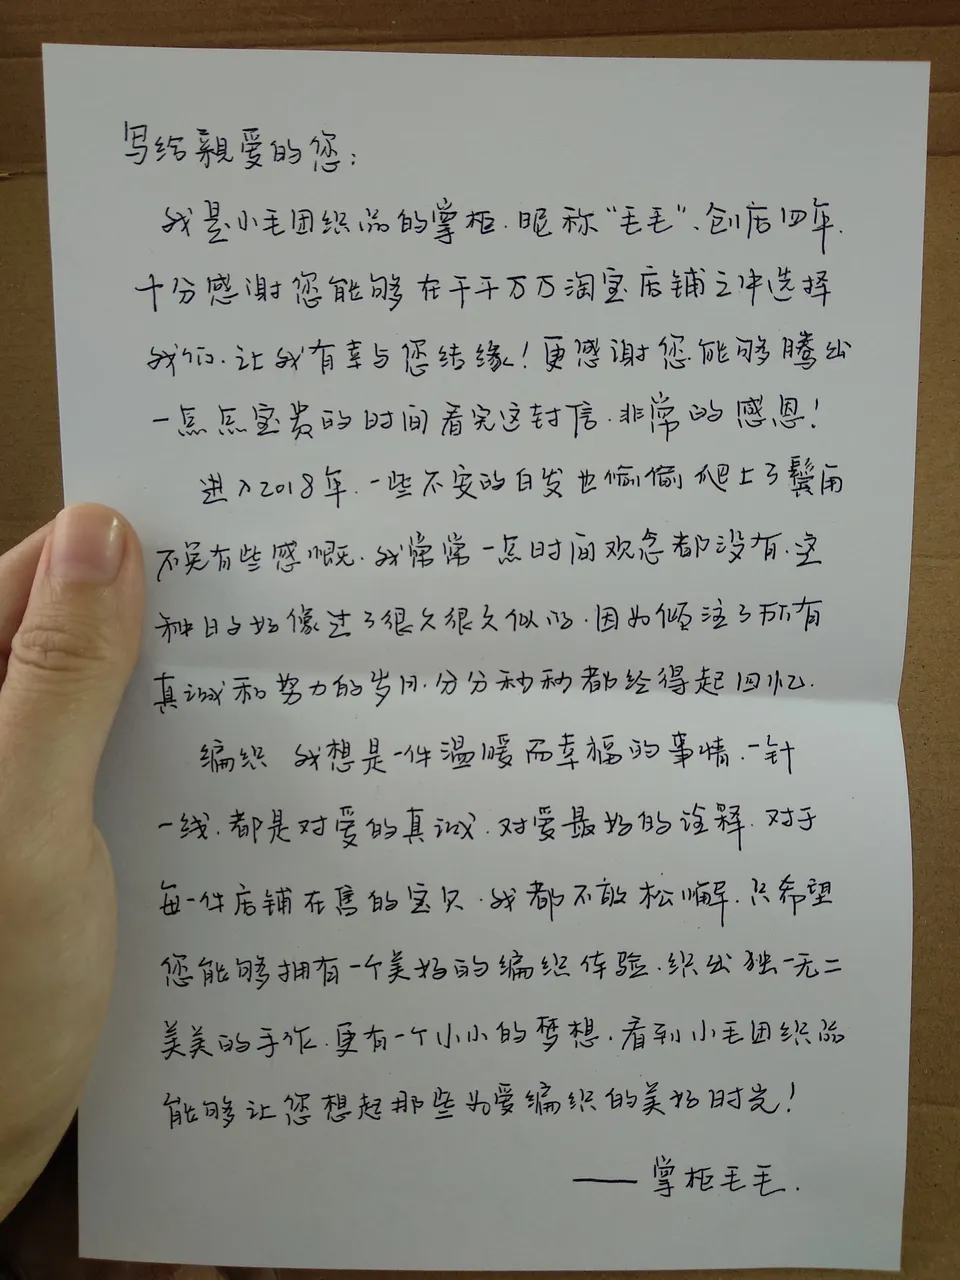 写给親爱的您:
我是小毛团织品的掌柜.昵称“毛毛”、创店四年.
十分感谢您能够在千千万万淘宝店铺之中选择
我们.让我有幸与您结缘!更感谢您能够腾出
一点点宝贵的时间看完这封信.非常的感恩!
进入2018年.一些不安的白发也偷偷爬上了鬓角
不免有些感慨.我常常一点时间观念都没有.这
种日子好像过了很久很久似的.因为倾注了所有
真诚和努力的岁月.分分秒秒都经得起回忆.
编织 我想是一件温暖而幸福的事情.一针
一线.都是对爱的真诚.对爱最好的诠释.对于
每一件店铺在售的宝贝.我都不敢松懈.只希望
您能够拥有一个美好的编织体验.织出独一无二
美美的手作.更有一个小小的梦想.看到小毛团织品
能够让您想起那些为爱编织的美好时光!
——掌柜毛毛.